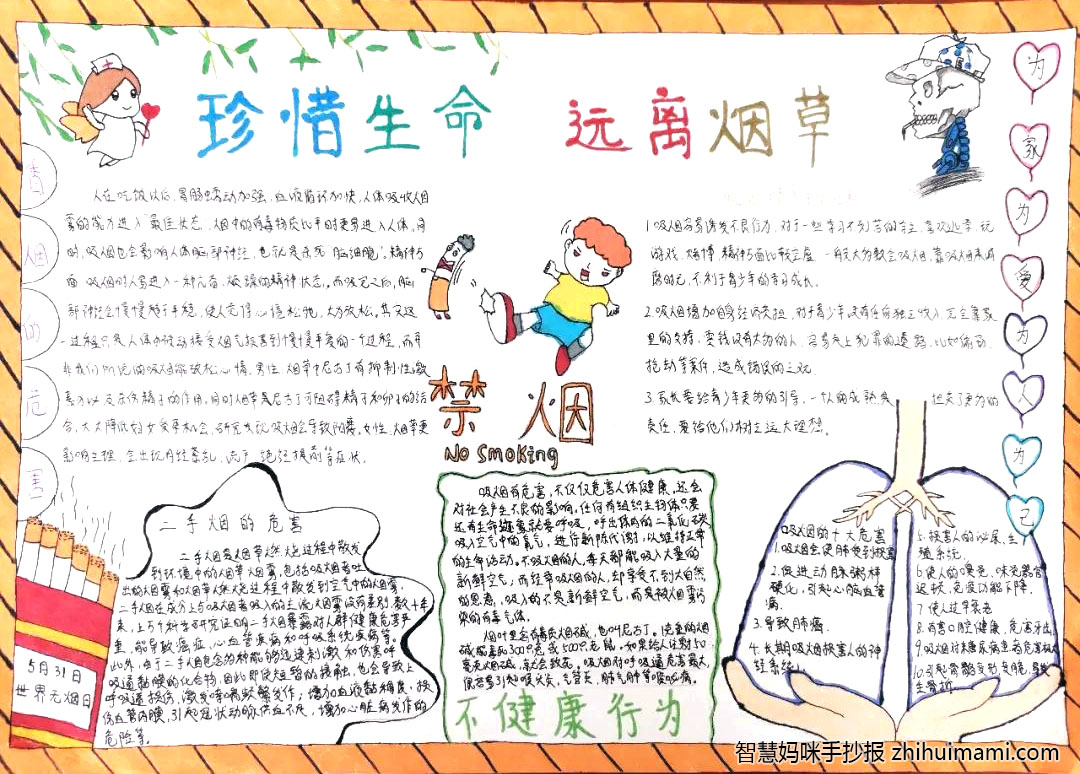 珍惜生命 远离烟草
香烟的危害
人在吃饭以后，胃肠蠕动加强，血液循环加快，人体吸收烟
雾的能力进入最佳状态，烟中的有毒物质比平时更易进入人体，同
时，吸烟也会影响人体脑部神经，也就是杀死"脑细胞"，精神方
面 吸烟时人易进入一种
神状态，而吸完之后，脑
部神经会慢慢趋于平稳，使人觉得心情松弛，大为放松，其又这
一过程只是人体中被动接受烟气
的一个过程，而有
非我们所说的吸烟
放松心情。男性：烟草中尼古丁有抑制性激
素分泌及杀伤精子的作用，同时烟草或尼古丁可阻碍精子和卵子的结
合，大大降低妇女受孕机会，研究发现吸烟会导致阳痿。女性：烟草更
影响生理，会出现月经紊乱、流产、绝经提前等症状。
禁烟
No Smoking
1.吸烟容易诱发不良行为，对于一些学习不刻苦的学生，喜欢逃学、玩
游戏、赌博，精神方面比较空虚，一般大多数会吸烟，靠吸烟来消
磨时光，不利于青少年的学习成长。
2.吸烟增加自身经济负担，对于青少年，没有任何独立收入，完全靠家
里的支持，要钱没有大方的人，容易走上犯罪的道路，比如偷盗、
抢劫等案件，造成错误的三观。
3.家长要给青少年更多的引导，一个人的成熟
担负了更多的
责任，要给他们树立远大理想。
为家为爱为人为己
二手烟的危害
二手烟是烟草燃烧过程中散发
到环境中的烟草烟雾，包括吸烟者吐
出的烟雾和烟草燃烧过程中散发到空气中的烟雾，
二手烟在成分上与吸烟者吸入的主流烟雾没有差别，数十年
来，上万个科学研究证明二手烟暴露对人群健康危害严
重，能导致癌症，心血管疾病和呼吸系统疾病等。
此外，由于二手烟包含多种能够迅速刺激和伤害呼
吸道黏膜的化合物，因此即使短暂的接触，也会导致上
呼吸道损伤，激发哮喘频繁发作；增加血液黏稠度，损
伤血管内膜，引起冠状动脉供血不足，增加心脏病发作的
危险等。
5月31日
世界无烟日
吸烟有危害，不仅仅危害人体健康，还会
对社会产生不良的影响，任何有组织生物体只要
还有生命迹象就要呼吸，呼出体内的二氧化碳
吸入空气中的氧气，进行新陈代谢，以维持正常
的生命活动。不吸烟的人，每天都能吸入大量的
新鲜空气；而经常吸烟的人，却享受不到大自然
的恩惠，吸入的不是新鲜空气，而是被烟雾污
染的有毒气体。
烟叶里含有毒质烟碱，也叫尼古丁。1克重的烟
碱能毒死300只兔或500只老鼠。如果给人注射50
毫克烟碱，就会致死。吸烟对呼吸道危害最大，
很容易引起喉头炎，气管炎，肺气肿等咳嗽病。
不健康行为
吸烟的十大危害
1.吸烟会使肺受到损害
2.促进动脉粥样
硬化，引起心脑血管
病。
3.导致肺癌
4.长期吸烟损害人的神
经系统
5.损害人的泌尿、生
殖系统。
6.使人的嗅觉、味觉器官
迟钝，免疫功能下降。
7.使人过早衰老
8.有害口腔健康，危害牙齿
9.吸烟对糖尿病患者危害极大
10.引起骨骼变动
智慧妈咪手抄报 zhihuimami.com